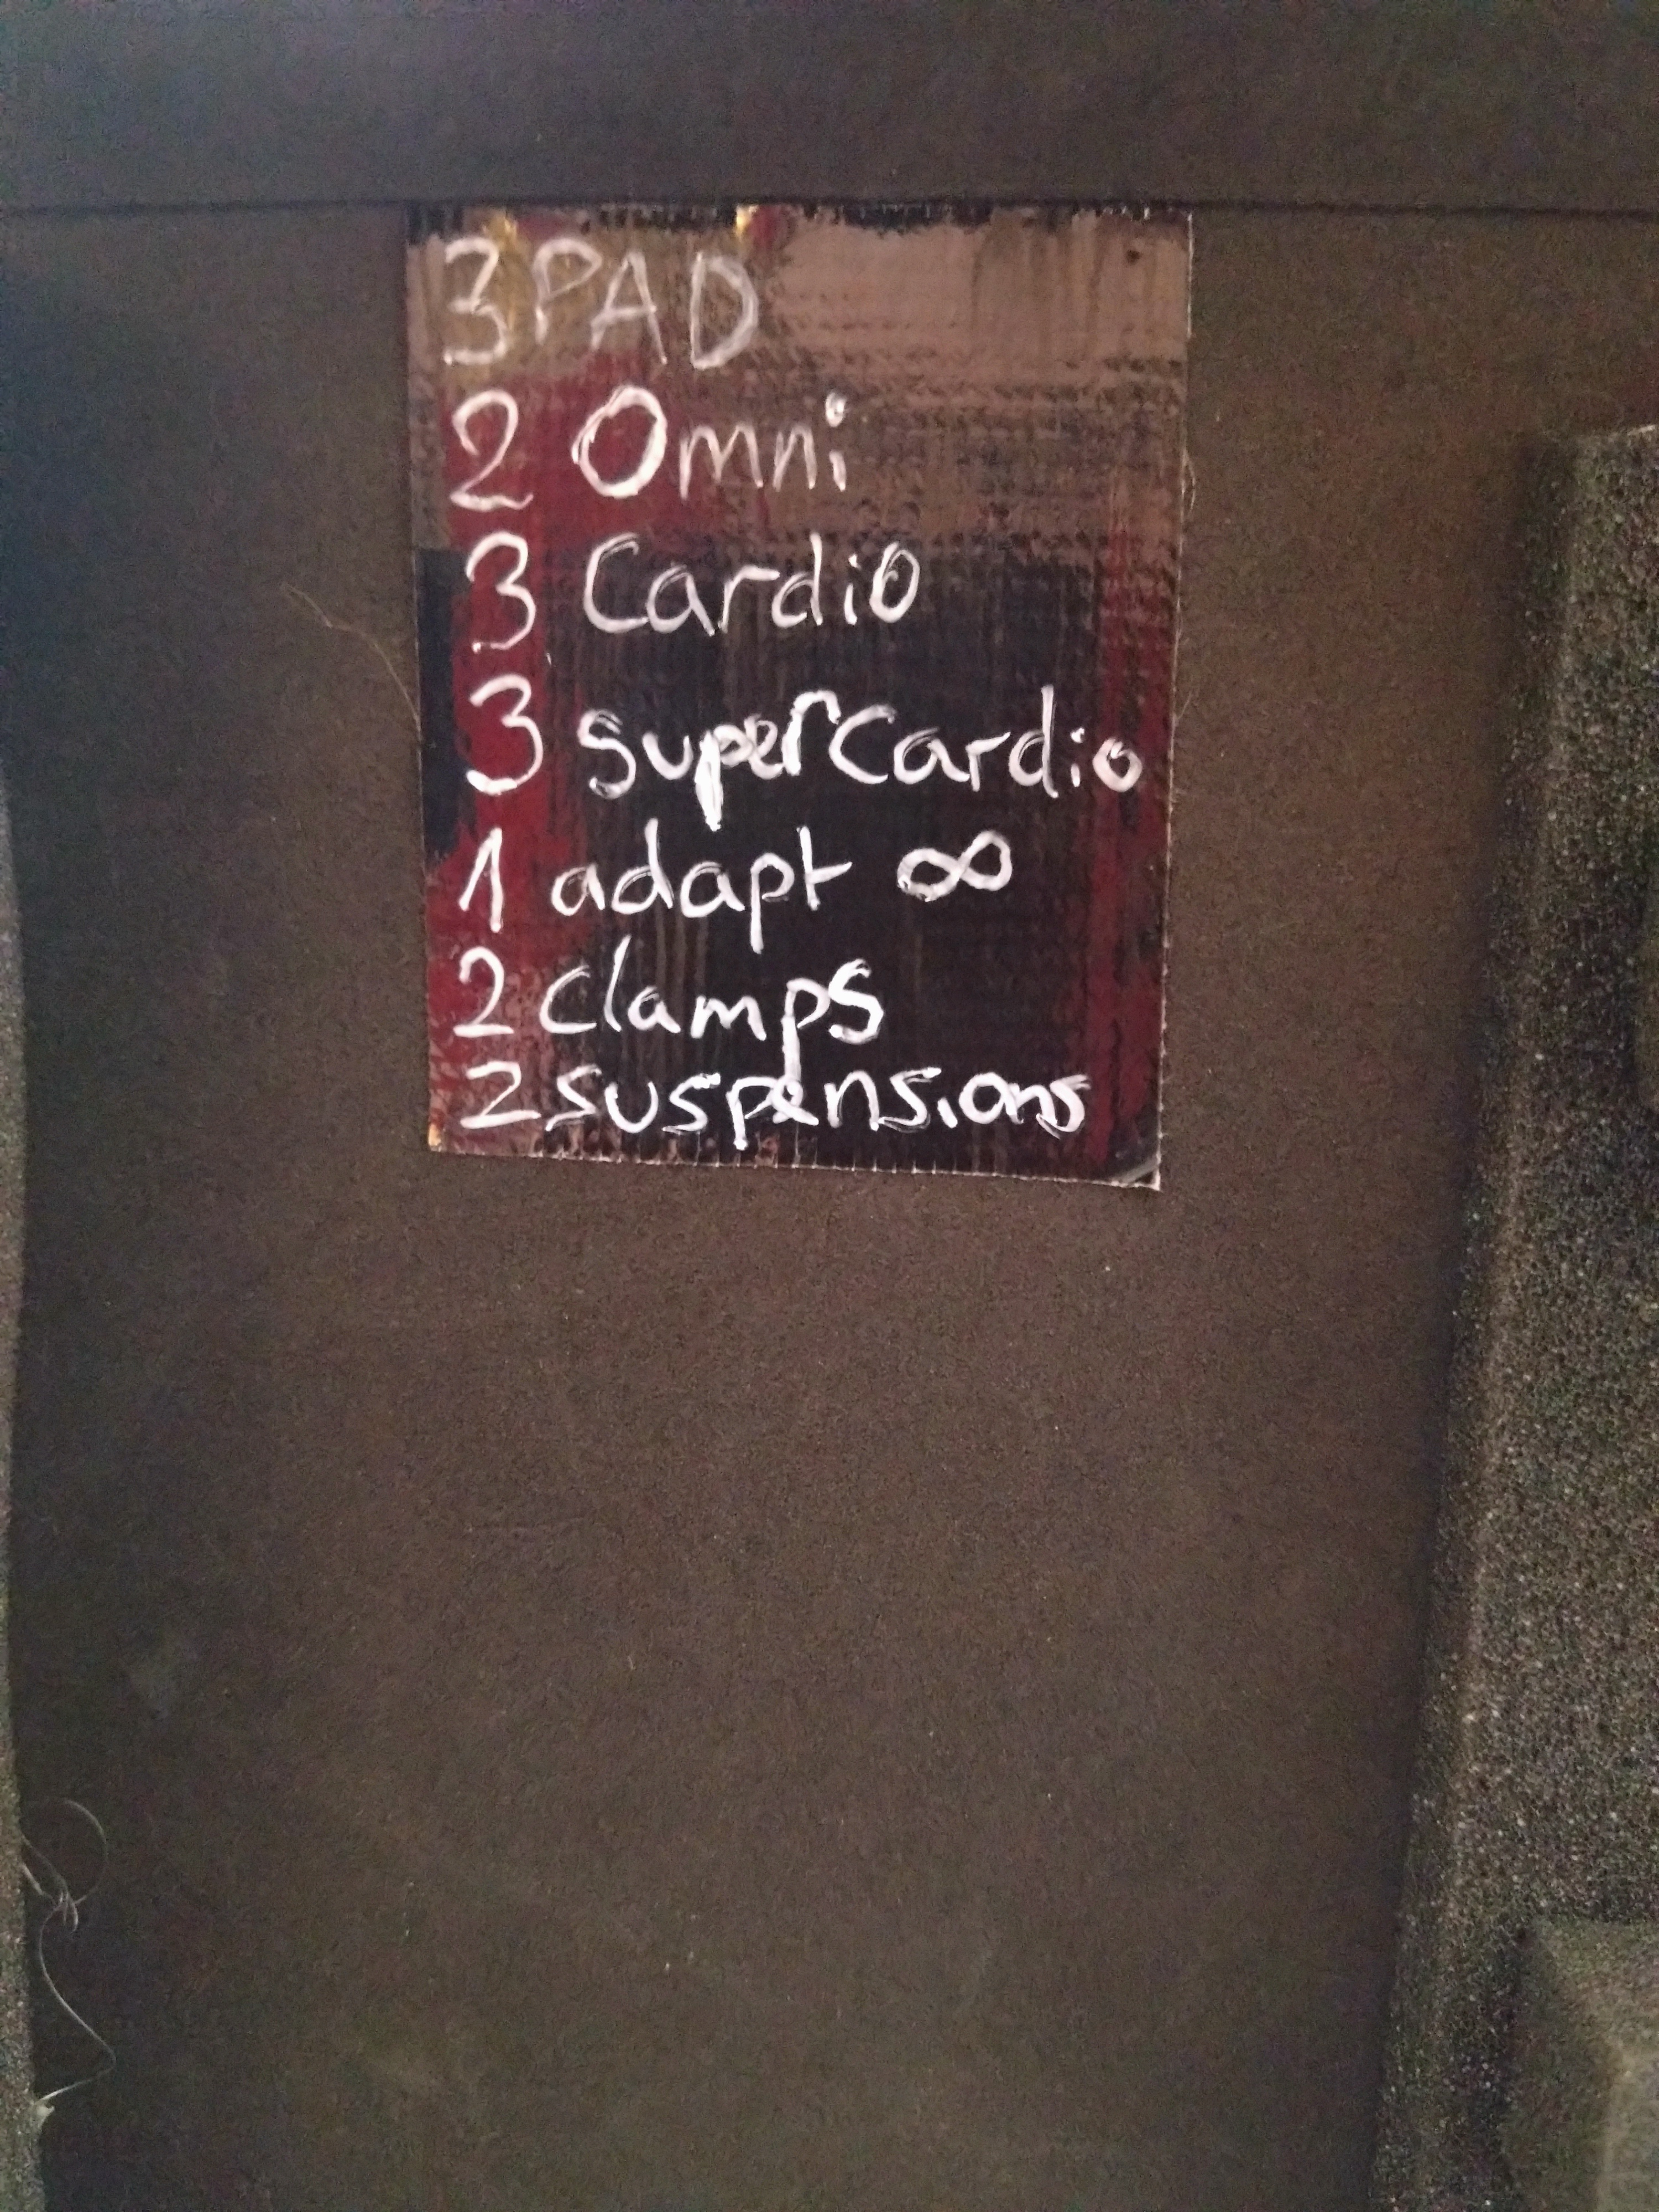 3 PAD
2 Omni
3 Cardio
3 superCardio
1 adapt ∞
2 clamps
2 suspensions